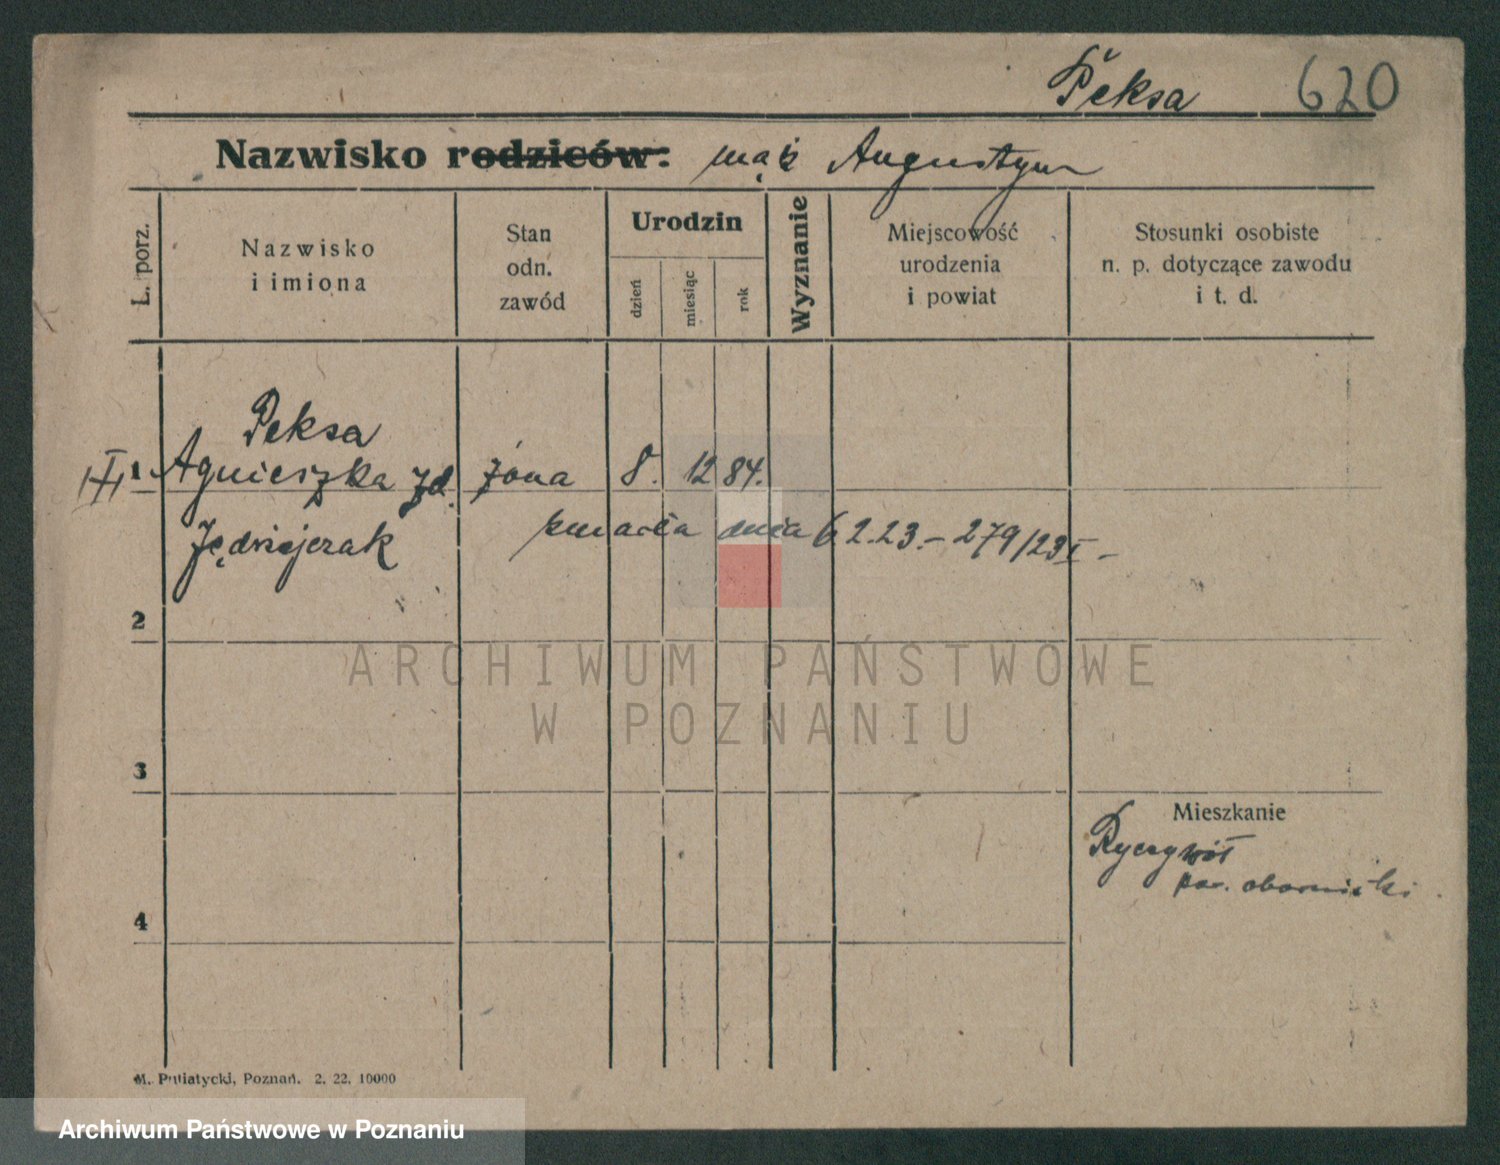 Peksa 620
Nazwisko rodziców: mąż Augustyn
L. porz.
Nazwisko
i imiona
Stan
odn.
zawód
Urodzin
dzień
miesiąc
rok
Wyznanie
Miejscowość
urodzenia
i powiat
Stosunki osobiste
n. p. dotyczące zawodu
i t. d.
Peksa
1 Agnieszka zd. żona 8. 12 84.
Jędrzejczak
zmarła dnia 6 2.23.– 279/23 I –
2
3
4
Mieszkanie
Ryczywół
pow. obornicki.
M. Putiatycki, Poznań. 2. 22. 10000
ARCHIWUM PAŃSTWOWE
W POZNANIU
Archiwum Państwowe w Poznaniu